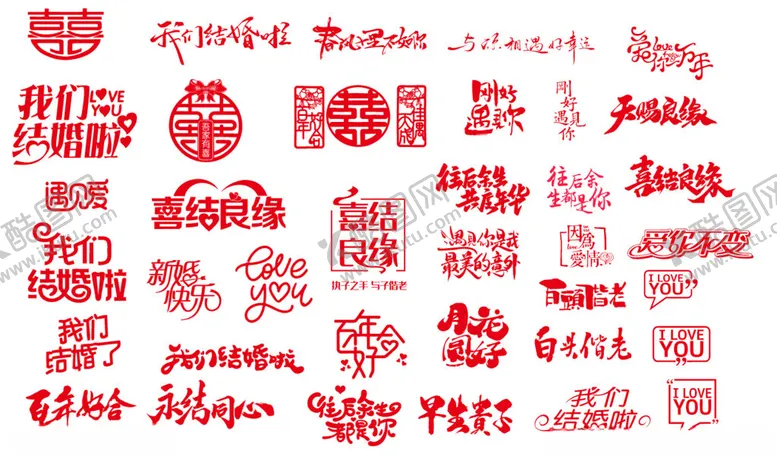 囍
我们结婚啦
春风十里不如你
与你相遇好幸运
爱你love万年
我们LOVE
YOU
结婚啦
囍
喜家有喜
百年好合
囍
佳偶天成
刚好
遇见你
刚好遇见你
天赐良缘
遇见爱
喜结良缘
喜结
良缘
执子之手 与子偕老
往后余生
共度年华
往后余
生都是你
喜结良缘
我们
结婚啦
新婚
快乐
love
you
遇见你是我
最美的意外
因为
love
爱情
爱你不变
百头偕老
I LOVE
YOU
我们
结婚了
我们结婚啦
百年
好合
月花
圆好
白头偕老
I LOVE
YOU
百年好合
永结同心
往后余生
都是你
早生贵子
我们
结婚啦
I LOVE
YOU